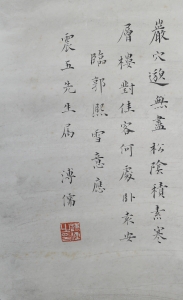 巖穴邃無盡松陰積素寒
層樓對佳客何處卧袁安
臨郭熙雪意應
震五先生屬 溥儒